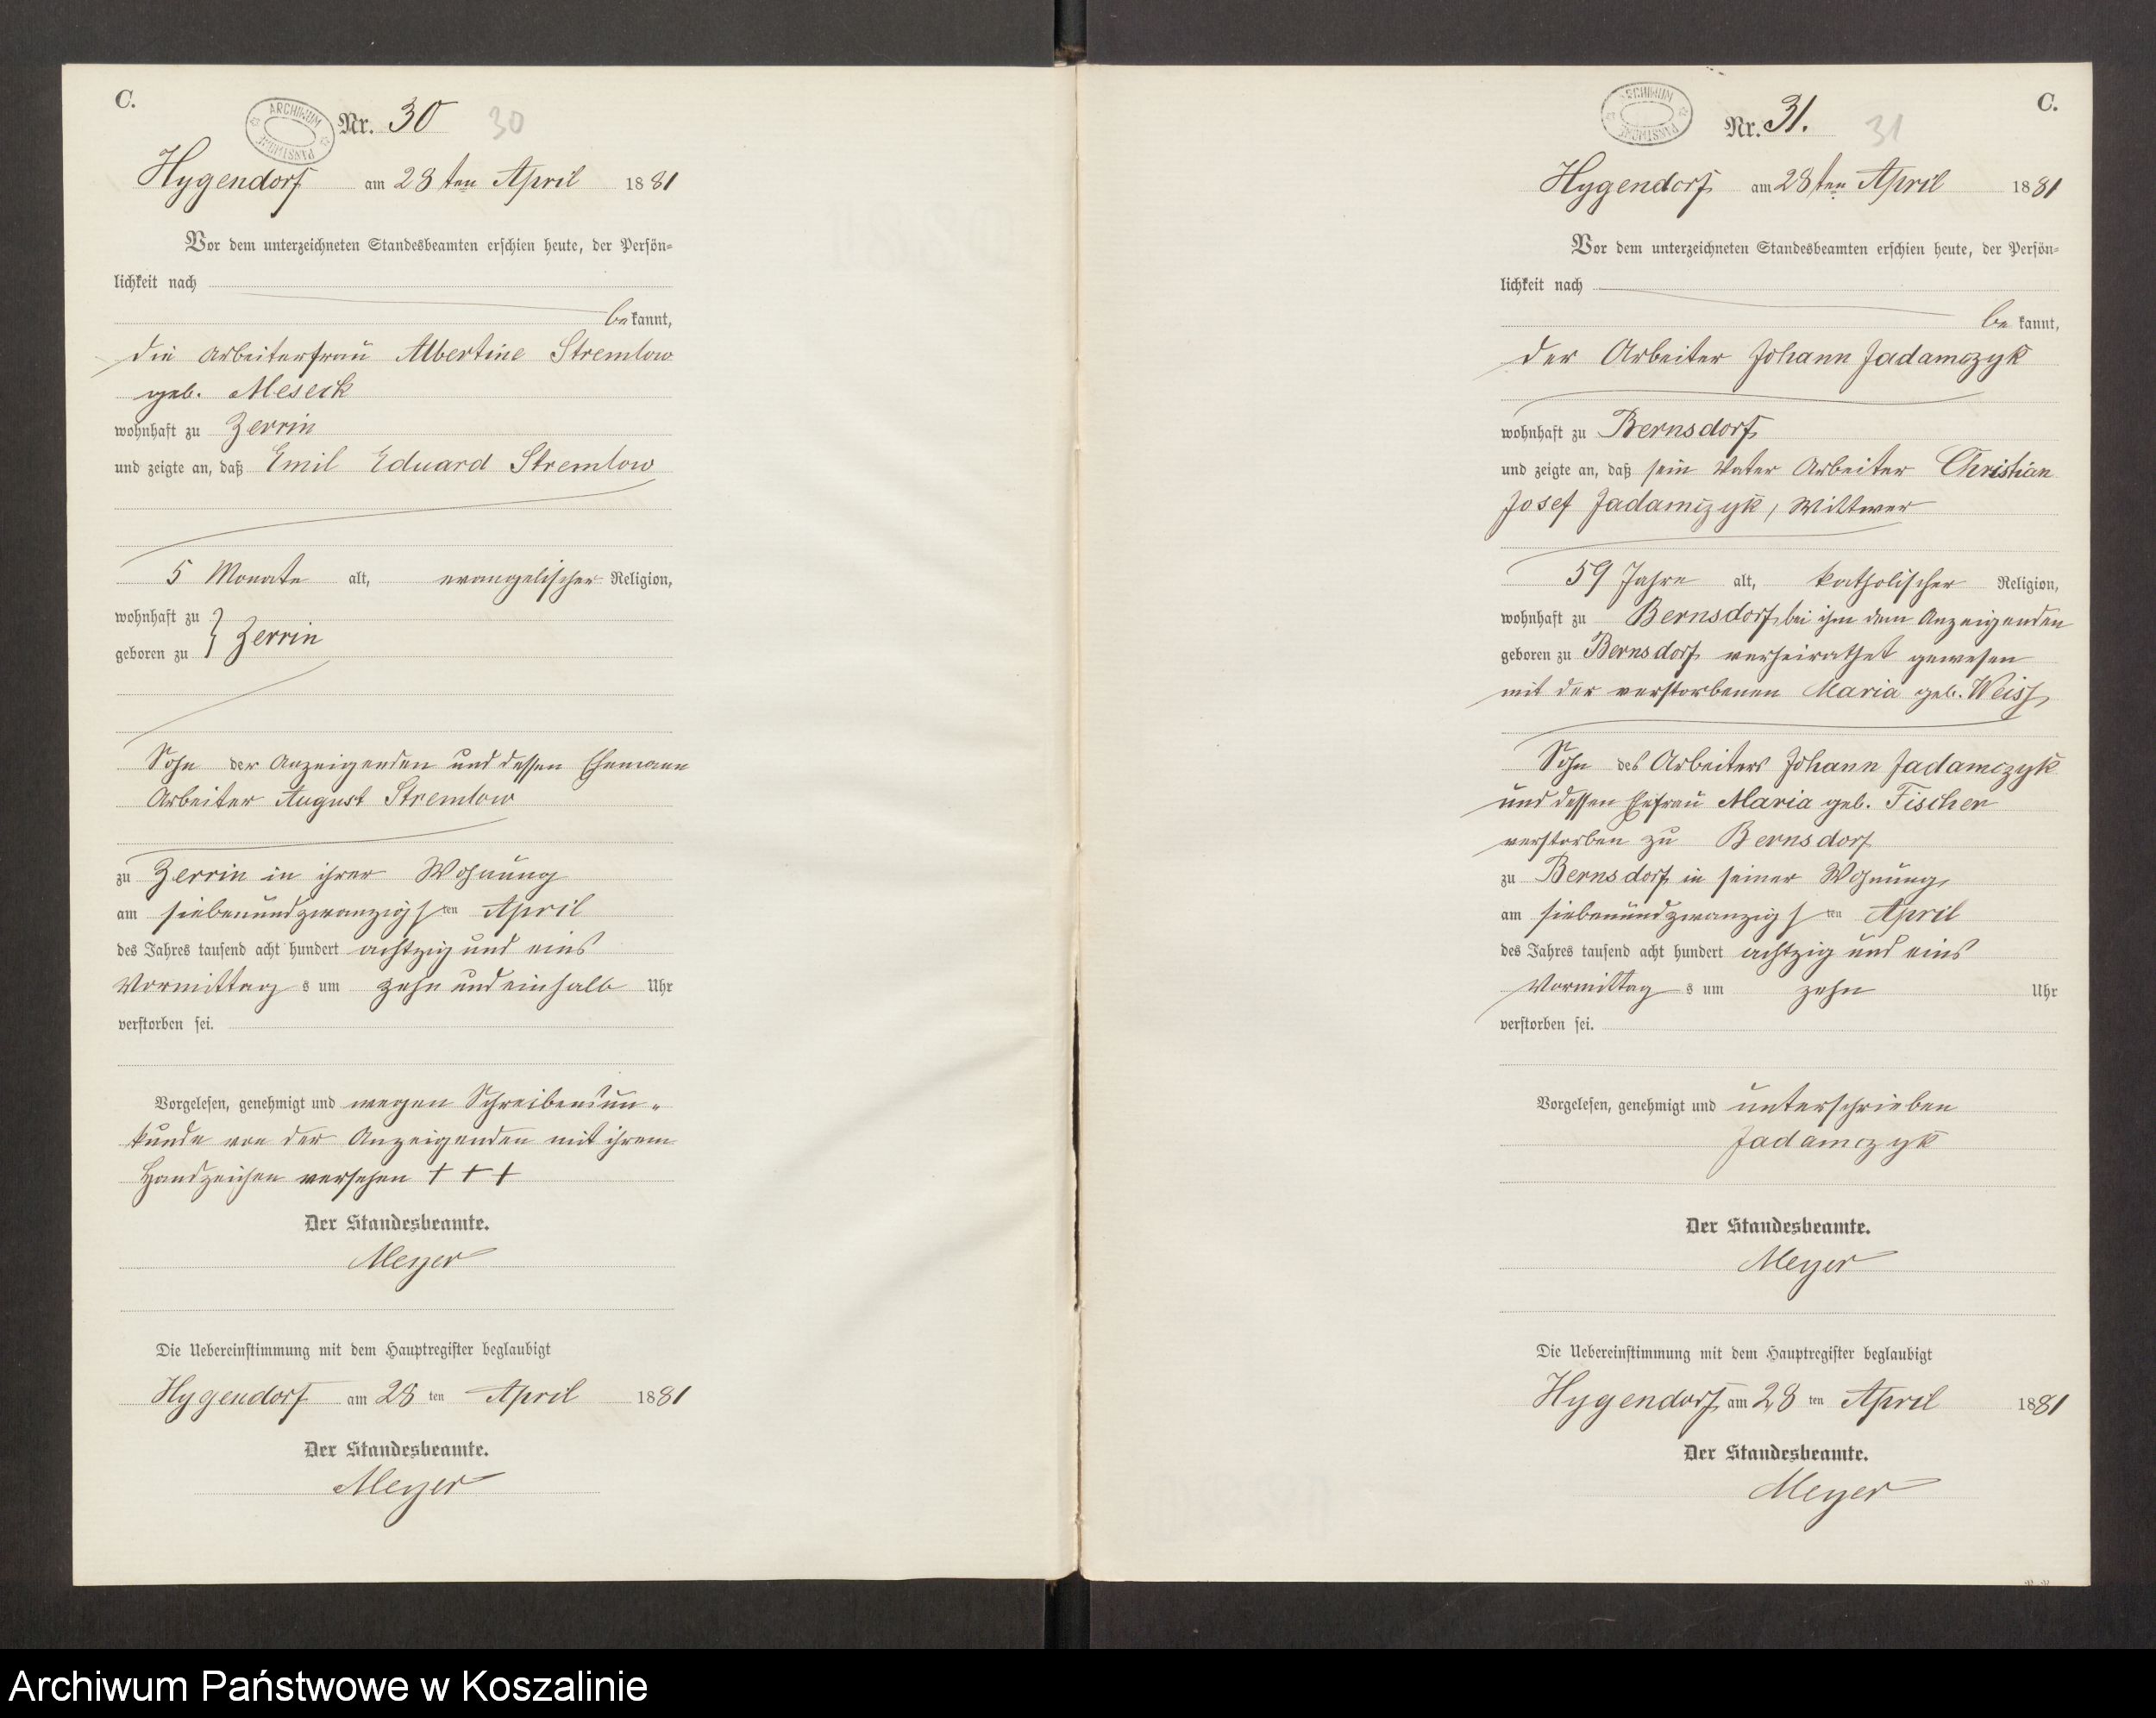 C.
ARCHIWUM PAŃSTWOWE
Nr. 30 30
Hygendorf am 28ten April 1881
Vor dem unterzeichneten Standesbeamten erschien heute, der Persön-
lichkeit nach
bekannt,
die Arbeiterfrau Albertine Stremlow
geb. Meseck
wohnhaft zu Zerrin
und zeigte an, daß Emil Eduard Stremlow
5 Monate alt, evangelischer Religion,
wohnhaft zu
geboren zu } Zerrin
Sohn der Anzeigenden und dessen Ehemann
Arbeiter August Stremlow
zu Zerrin in ihrer Wohnung
am siebenundzwanzigsten April
des Jahres tausend acht hundert achtzig und eins
Vormittags um zehn und einhalb Uhr
verstorben sei.
Vorgelesen, genehmigt und wegen Schreibensun-
kunde von der Anzeigenden mit ihrem
Handzeichen versehen + + +
Der Standesbeamte.
Meyer
Die Uebereinstimmung mit dem Hauptregister beglaubigt
Hygendorf am 28ten April 1881
Der Standesbeamte.
Meyer
C.
ARCHIWUM PAŃSTWOWE
Nr. 31. 31
Hygendorf am 28ten April 1881
Vor dem unterzeichneten Standesbeamten erschien heute, der Persön-
lichkeit nach
bekannt,
der Arbeiter Johann Jadamczyk
wohnhaft zu Bernsdorf
und zeigte an, daß sein Vater Arbeiter Christian
Josef Jadamczyk, Wittwer
59 Jahre alt, katholischer Religion,
wohnhaft zu Bernsdorf bei ihm dem Anzeigenden
geboren zu Bernsdorf verheirathet gewesen
mit der verstorbenen Maria geb. Weiss
Sohn des Arbeiters Johann Jadamczyk
und dessen Ehefrau Maria geb. Fischer
verstorben zu Bernsdorf
zu Bernsdorf in seiner Wohnung
am siebenundzwanzigsten April
des Jahres tausend acht hundert achtzig und eins
Vormittags um zehn Uhr
verstorben sei.
Vorgelesen, genehmigt und unterschrieben
Jadamczyk
Der Standesbeamte.
Meyer
Die Uebereinstimmung mit dem Hauptregister beglaubigt
Hygendorf am 28ten April 1881
Der Standesbeamte.
Meyer
Archiwum Państwowe w Koszalinie